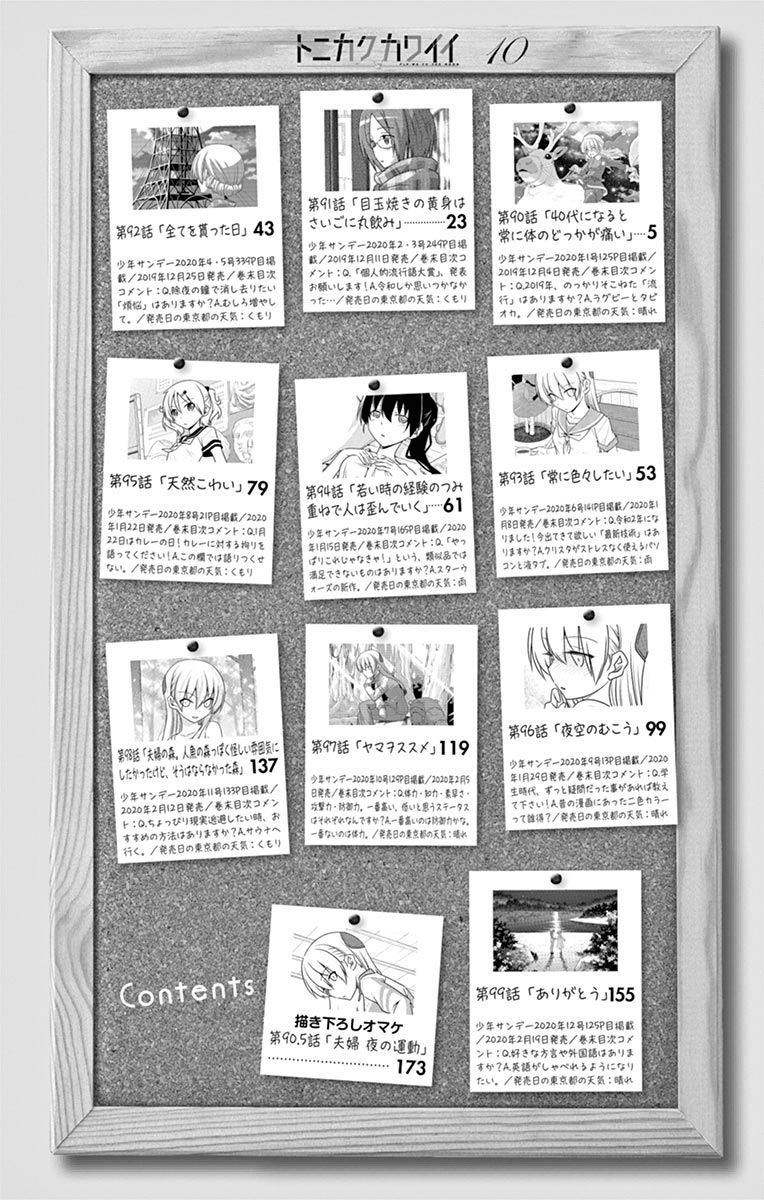 トニカクカワイイ 10
FLY ME TO THE MOON
第90話「40代になると
常に体のどっかが痛い」…5
少年サンデー2020年1号125P目掲
載/2019年12月4日発売/巻末目次
コメント：Q.2019年、のっかりそこねた「流
行」はありますか？A.ラグビーとタピ
オカ。/発売日の東京都の天気：晴れ
第91話「目玉焼きの黄身は
さいごに丸飲み」……………23
少年サンデー2020年2・3号249P目掲
載/2019年12月11日発売/巻末目次コ
メント：Q.「個人的流行語大賞」、発表
お願いします！A.令和しか思いつかなか
った…/発売日の東京都の天気：くもり
第92話「全てを貰った日」43
少年サンデー2020年4・5号339P目掲
載/2019年12月25日発売/巻末目次
コメント：Q.除夜の鐘で消し去りたい
「煩悩」はありますか？A.むしろ増やし
て。/発売日の東京都の天気：くもり
第93話「常に色々したい」53
少年サンデー2020年6号141P目掲載/2020年1
月8日発売/巻末目次コメント：Q.令和2年にな
りました！今出てきて欲しい「最新技術」はあ
りますか？A.クリスタがストレスなく使えるパソ
コンと液タブ。/発売日の東京都の天気：雨
第94話「若い時の経験のつみ
重ねで人は歪んでいく」……61
少年サンデー2020年7号165P目掲載/2020
年1月15日発売/巻末目次コメント：Q.「やっ
ぱりこれじゃなきゃ！」という、類似品では
満足できないものはありますか？A.スターウ
ォーズの新作。/発売日の東京都の天気：雨
第95話「天然こわい」79
少年サンデー2020年8号21P目掲載/2020
年1月22日発売/巻末目次コメント：Q.1月
22日はカレーの日！カレーに対する拘りを
語ってください！A.この欄では語りつくせ
ない。/発売日の東京都の天気：くもり
第96話「夜空のむこう」99
少年サンデー2020年9号13P目掲載/2020
年1月29日発売/巻末目次コメント：Q.学
生時代、ずっと疑問だった事があれば教え
て下さい！A.昔の漫画にあった二色カラー
って誰得？/発売日の東京都の天気：晴れ
第97話「ヤマヲススメ」119
少年サンデー2020年10号129P目掲載/2020年2月5
日発売/巻末目次コメント：Q.体力・知力・素早さ・
攻撃力・防御力。一番高い、低いと思うステータス
はそれぞれなんですか？A.一番高いのは防御力かな。
一番ないのは体力。/発売日の東京都の天気：晴れ
第98話「夫婦の森。人魚の森っぽく怪しい雰囲気に
したかったけど、そうはならなかった森」137
少年サンデー2020年11号133P目掲載/
2020年2月12日発売/巻末目次コメン
ト：Q.ちょっぴり現実逃避したい時、お
すすめの方法はありますか？A.サウナへ
行く。/発売日の東京都の天気：くもり
第99話「ありがとう」155
少年サンデー2020年12号125P目掲載
/2020年2月19日発売/巻末目次コメ
ント：Q.好きな方言や外国語はありま
すか？A.英語がしゃべれるようになり
たい。/発売日の東京都の天気：晴れ
描き下ろしオマケ
第90.5話「夫婦 夜の運動」
……………………………173
Contents